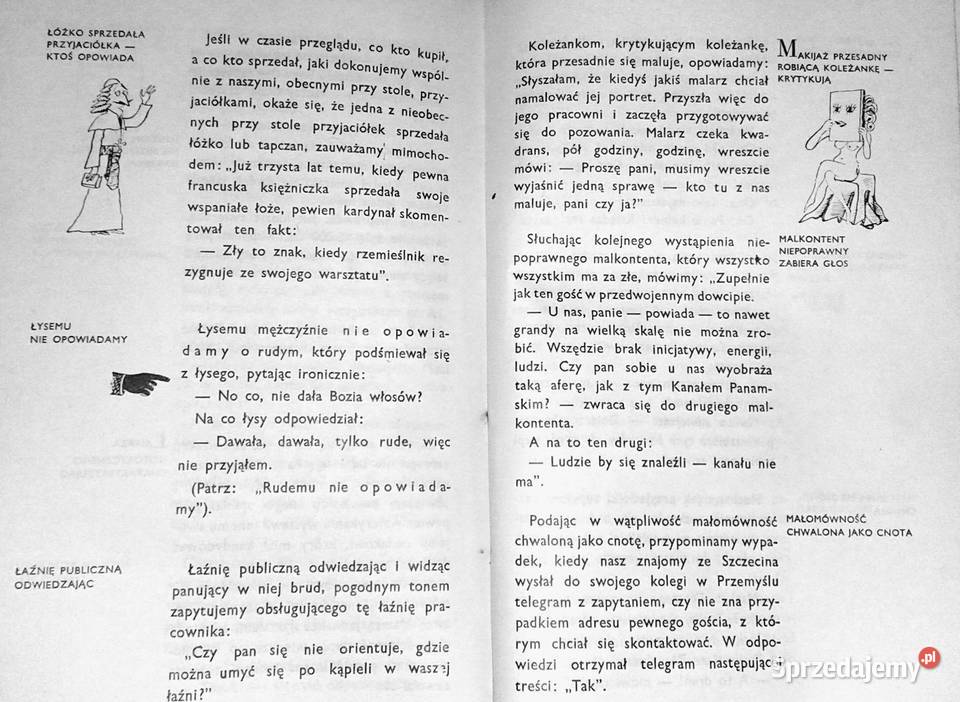 ŁÓŻKO SPRZEDAŁA
PRZYJACIÓŁKA —
KTOŚ OPOWIADA
Jeśli w czasie przeglądu, co kto kupił,
a co kto sprzedał, jaki dokonujemy wspól-
nie z naszymi, obecnymi przy stole, przy-
jaciółkami, okaże się, że jedna z nieobec-
nych przy stole przyjaciółek sprzedała
łóżko lub tapczan, zauważamy mimocho-
dem: „Już trzysta lat temu, kiedy pewna
francuska księżniczka sprzedała swoje
wspaniałe łoże, pewien kardynał skomen-
tował ten fakt:
— Zły to znak, kiedy rzemieślnik re-
zygnuje ze swojego warsztatu”.
ŁYSEMU
NIE OPOWIADAMY
Łysemu mężczyźnie nie opowia-
damy o rudym, który podśmiewał się
z łysego, pytając ironicznie:
— No co, nie dała Bozia włosów?
Na co łysy odpowiedział:
— Dawała, dawała, tylko rude, więc
nie przyjąłem.
(Patrz: „Rudemu nie opowiada-
my”).
ŁAŹNIĘ PUBLICZNĄ
ODWIEDZAJĄC
Łaźnię publiczną odwiedzając i widząc
panujący w niej brud, pogodnym tonem
zapytujemy obsługującego tę łaźnię pra-
cownika:
„Czy pan się nie orientuje, gdzie
można umyć się po kąpieli w waszej
łaźni?”
Koleżankom, krytykującym koleżankę,
która przesadnie się maluje, opowiadamy:
„Słyszałam, że kiedyś jakiś malarz chciał
namalować jej portret. Przyszła więc do
jego pracowni i zaczęła przygotowywać
się do pozowania. Malarz czeka kwa-
drans, pół godziny, godzinę, wreszcie
mówi: — Proszę pani, musimy wreszcie
wyjaśnić jedną sprawę — kto tu z nas
maluje, pani czy ja?”
MAKIJAŻ PRZESADNY
ROBIĄCĄ KOLEŻANKĘ —
KRYTYKUJĄ
Słuchając kolejnego wystąpienia nie-
poprawnego malkontenta, który wszystko
wszystkim ma za złe, mówimy: „Zupełnie
jak ten gość w przedwojennym dowcipie.
— U nas, panie — powiada — to nawet
grandy na wielką skalę nie można zro-
bić. Wszędzie brak inicjatywy, energii,
ludzi. Czy pan sobie u nas wyobraża
taką aferę, jak z tym Kanałem Panam-
skim? — zwraca się do drugiego mal-
kontenta.
A na to ten drugi:
— Ludzie by się znaleźli — kanału nie
ma”.
MALKONTENT
NIEPOPRAWNY
ZABIERA GŁOS
Podając w wątpliwość małomówność
chwaloną jako cnotę, przypominamy wypa-
dek, kiedy nasz znajomy ze Szczecina
wysłał do swojego kolegi w Przemyślu
telegram z zapytaniem, czy nie zna przy-
padkiem adresu pewnego gościa, z któ-
rym chciał się skontaktować. W odpo-
wiedzi otrzymał telegram następującej
treści: „Tak”.
MAŁOMÓWNOŚĆ
CHWALONA JAKO CNOTA
Sprzedajemy.pl